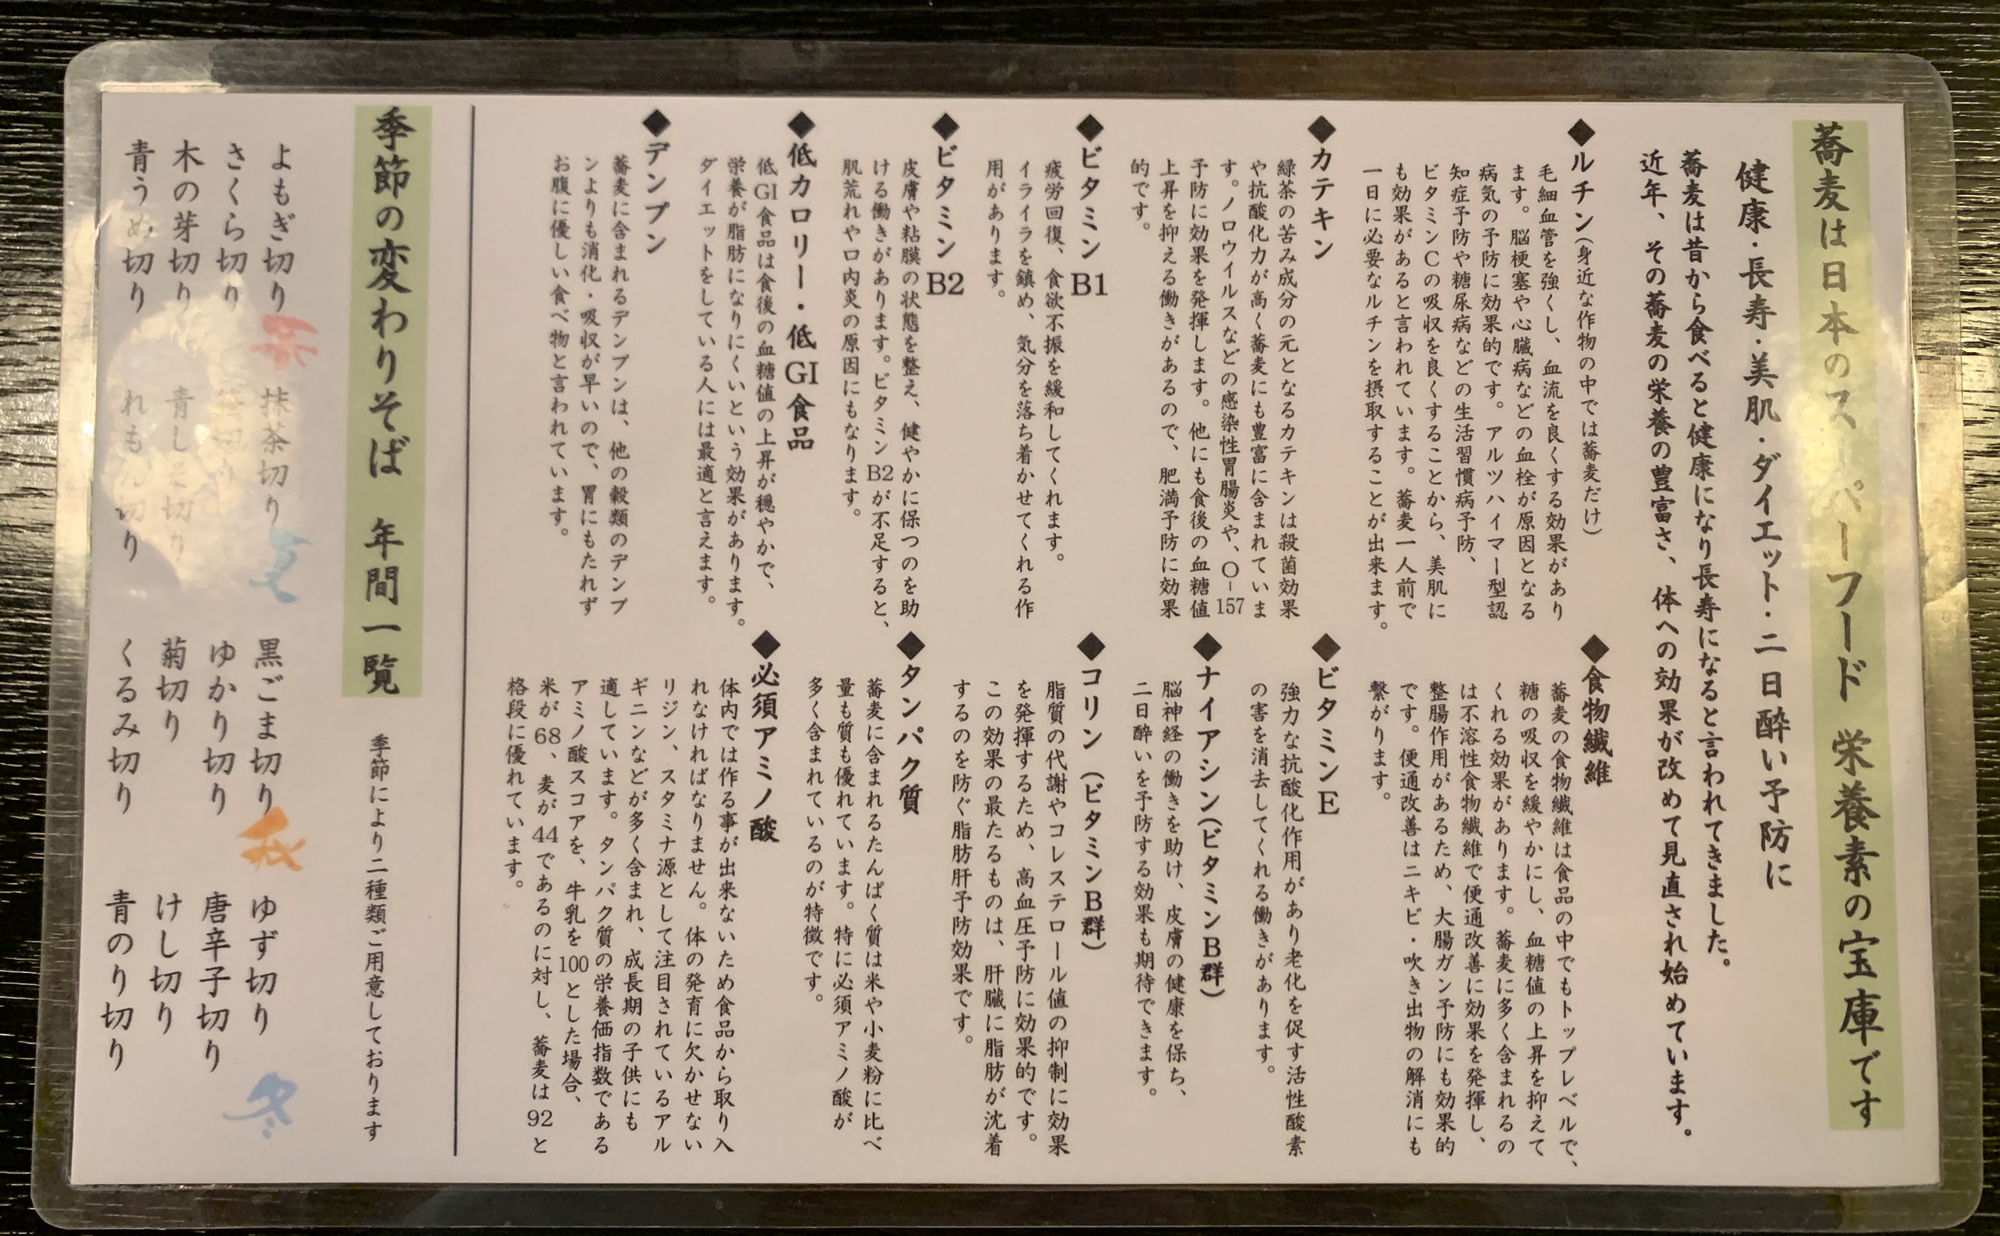 蕎麦は日本のスーパーフード 栄養素の宝庫です
健康・長寿・美肌・ダイエット・二日酔い予防に
蕎麦は昔から食べると健康になり長寿になると言われてきました。
近年、その蕎麦の栄養の豊富さ、体への効果が改めて見直され始めています。
◆ルチン(身近な作物の中では蕎麦だけ)
毛細血管を強くし、血流を良くする効果があり
ます。脳梗塞や心臓病などの血栓が原因となる
病気の予防に効果的です。アルツハイマー型認
知症予防や糖尿病などの生活習慣病予防、
ビタミンCの吸収を良くすることから、美肌に
も効果があると言われています。蕎麦一人前で
一日に必要なルチンを摂取することが出来ます。
◆カテキン
緑茶の苦み成分の元となるカテキンは殺菌効果
や抗酸化力が高く蕎麦にも豊富に含まれていま
す。ノロウイルスなどの感染性胃腸炎や、O-157
予防に効果を発揮します。他にも食後の血糖値
上昇を抑える働きがあるので、肥満予防に効果
的です。
◆ビタミンB1
疲労回復、食欲不振を緩和してくれます。
イライラを鎮め、気分を落ち着かせてくれる作
用があります。
◆ビタミンB2
皮膚や粘膜の状態を整え、健やかに保つのを助
ける働きがあります。ビタミンB2が不足すると、
肌荒れや口内炎の原因にもなります。
◆低カロリー・低GI食品
低GI食品は食後の血糖値の上昇が穏やかで、
栄養が脂肪になりにくいという効果があります。
ダイエットをしている人には最適と言えます。
◆デンプン
蕎麦に含まれるデンプンは、他の穀類のデンプ
ンよりも消化・吸収が早いので、胃にもたれず
お腹に優しい食べ物と言われています。
◆食物繊維
蕎麦の食物繊維は食品の中でもトップレベルで、
糖の吸収を緩やかにし、血糖値の上昇を抑えて
くれる効果があります。蕎麦に多く含まれるの
は不溶性食物繊維で便通改善に効果を発揮し、
整腸作用があるため、大腸ガン予防にも効果的
です。便通改善はニキビ・吹き出物の解消にも
繋がります。
◆ビタミンE
強力な抗酸化作用があり老化を促す活性酸素
の害を消去してくれる働きがあります。
◆ナイアシン(ビタミンB群)
脳神経の働きを助け、皮膚の健康を保ち、
二日酔いを予防する効果も期待できます。
◆コリン(ビタミンB群)
脂質の代謝やコレステロール値の抑制に効果
を発揮するため、高血圧予防に効果的です。
この効果の最たるものは、肝臓に脂肪が沈着
するのを防ぐ脂肪肝予防効果です。
◆タンパク質
蕎麦に含まれるたんぱく質は米や小麦粉に比べ
量も質も優れています。特に必須アミノ酸が
多く含まれているのが特徴です。
◆必須アミノ酸
体内では作る事が出来ないため食品から取り入
れなければなりません。体の発育に欠かせない
リジン、スタミナ源として注目されているアル
ギニンなどが多く含まれ、成長期の子供にも
適しています。タンパク質の栄養価指数である
アミノ酸スコアを、牛乳を100とした場合、
米が68、麦が44であるのに対し、蕎麦は92と
格段に優れています。
季節の変わりそば 年間一覧
季節により二種類ご用意しております
よもぎ切り
さくら切り
木の芽切り
青うめ切り
春
抹茶切り
笹切り
青しそ切り
れもん切り
夏
黒ごま切り
ゆかり切り
菊切り
くるみ切り
秋
ゆず切り
唐辛子切り
けし切り
青のり切り
冬